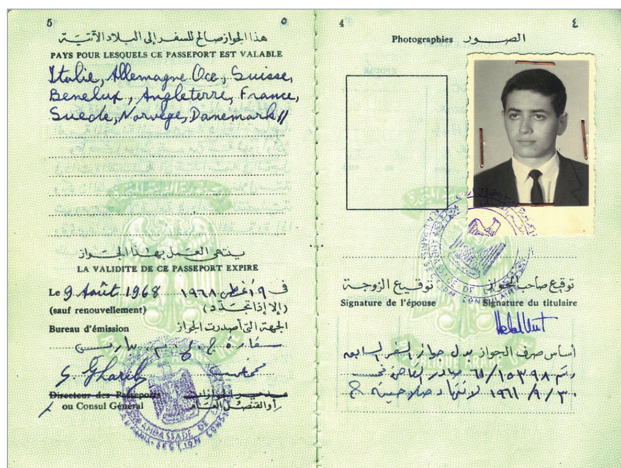 5
٥
هذا الجواز صالح للسفر إلى البلاد الآتية
PAYS POUR LESQUELS CE PASSEPORT EST VALABLE
Italie, Allemagne Occ, Suisse,
Benelux, Angleterre, France,
Suède, Norvège, Danemark //
ينتهي العمل بهذا الجواز
LA VALIDITE DE CE PASSEPORT EXPIRE
Le 9 Août 1968 في ٩ أغسطس ١٩٦٨
(sauf renouvellement) (إلا إذا تجدد)
Bureau d'émission الجهة التي أصدرت الجواز
سفارة ج.ع.م باريس
S. Gharib
Directeur des Passeports
ou Consul Général أو القنصل العام
4
٤
Photographies الصور
توقيع صاحب الجواز توقيع الزوجة
Signature de l'épouse Signature du titulaire
أساس صرف الجواز بدل جواز السفر
رقم
٣٠/٩/١٩٦١